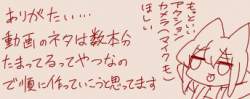 ありがたい…
動画のネタは数本分
たまってるってやつなの
で順に作っていこうと思ってます
もっといい
アクション
カメラ(マイクモ)
ほしい